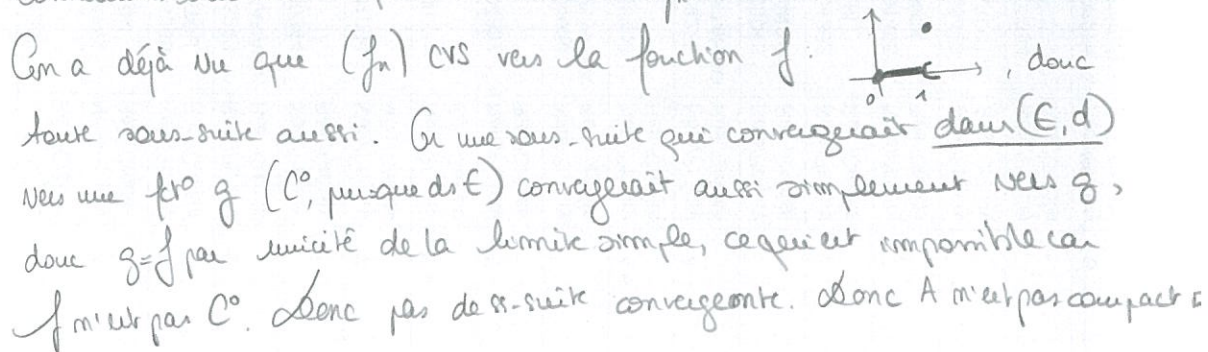 On a déjà vu que (fn) CVS vers la fonction f : 0 1 , donc
toute sous-suite aussi. Or une sous-suite qui convergerait dans (E, d)
vers une fct° g (C°, puisque ds E) convergerait aussi simplement vers g,
donc g=f par unicité de la limite simple, ce qui est impossible car
f n'est pas C°. Donc pas de ss-suite convergente. Donc A n'est pas compact